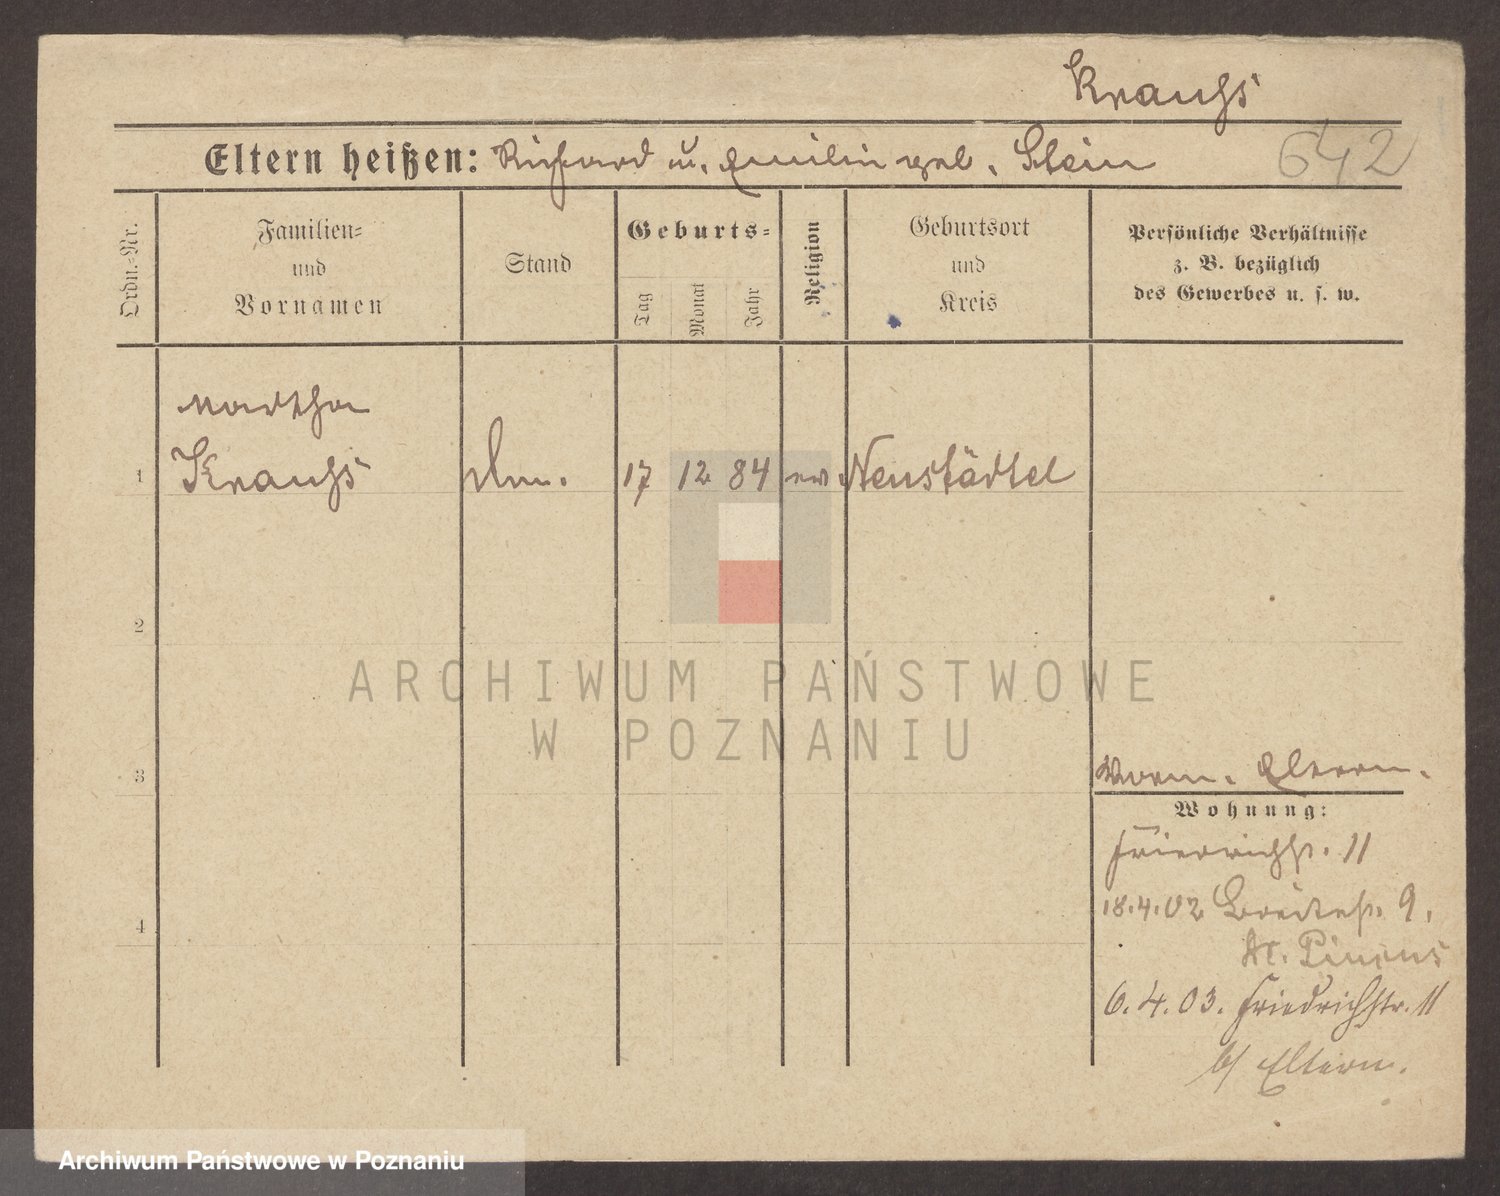 Krauhs
642
Eltern heißen: Richard u. Emilie geb. Stein
Ordn.-Nr.
Familien-
und
Vornamen
Stand
Geburts-
Tag
Monat
Jahr
Religion
Geburtsort
und
Kreis
Persönliche Verhältnisse
z. B. bezüglich
des Gewerbes u. s. w.
Martha
1 Krauhs 17 12 84 ev. Neustädtel
2
ARCHIWUM PAŃSTWOWE
W POZNANIU
3 Eltern.
Wohnung:
Friedrichstr. 11
18.4.02 Breitestr. 9.
4
6.4.03. Friedrichstr. 11
b/ Eltern.
Archiwum Państwowe w Poznaniu